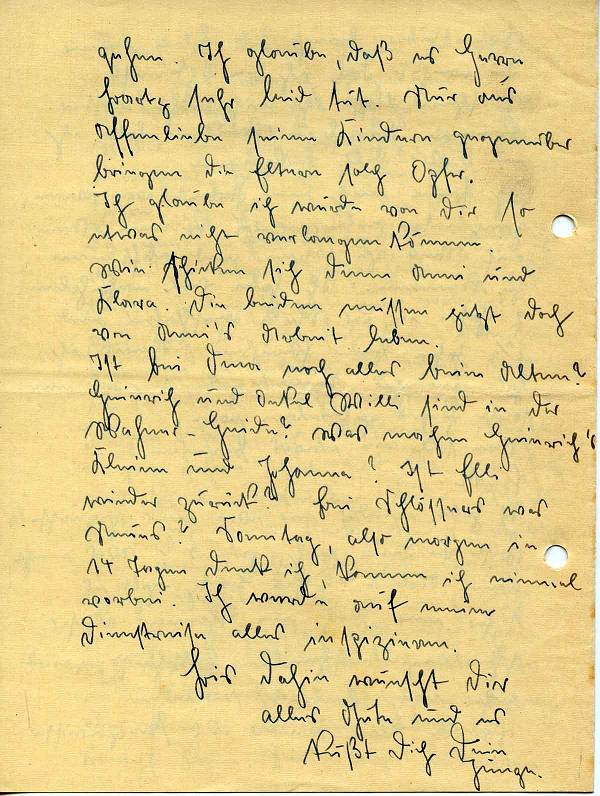 gehen. Ich glaube, daß es Herrn
Kraatz sehr leid tut. Nur aus
Affenliebe seinen Kindern gegenüber
bringen die Eltern solch Opfer.
Ich glaube ich würde von Dir so
etwas nicht verlangen können.
Wie schicken sich denn Anni und
Klara. Die beiden müssen jetzt doch
von Anni's Arbeit leben.
Ist bei Oma noch alles beim Alten?
Heinrich und Onkel Willi sind in der
Wahner-Heide? Was machen Heinrich's
Kleine und Johanna? Ist Elli
wieder zurück? Bei Schlössers was
Neues? Sonntag, also morgen in
14 Tagen denk ich, komme ich einmal
vorbei. Ich werde auf meiner
Dienstreise alles inspizieren.
Bis dahin wünscht Dir
alles Gute und es
küßt Dich Dein
Junge.